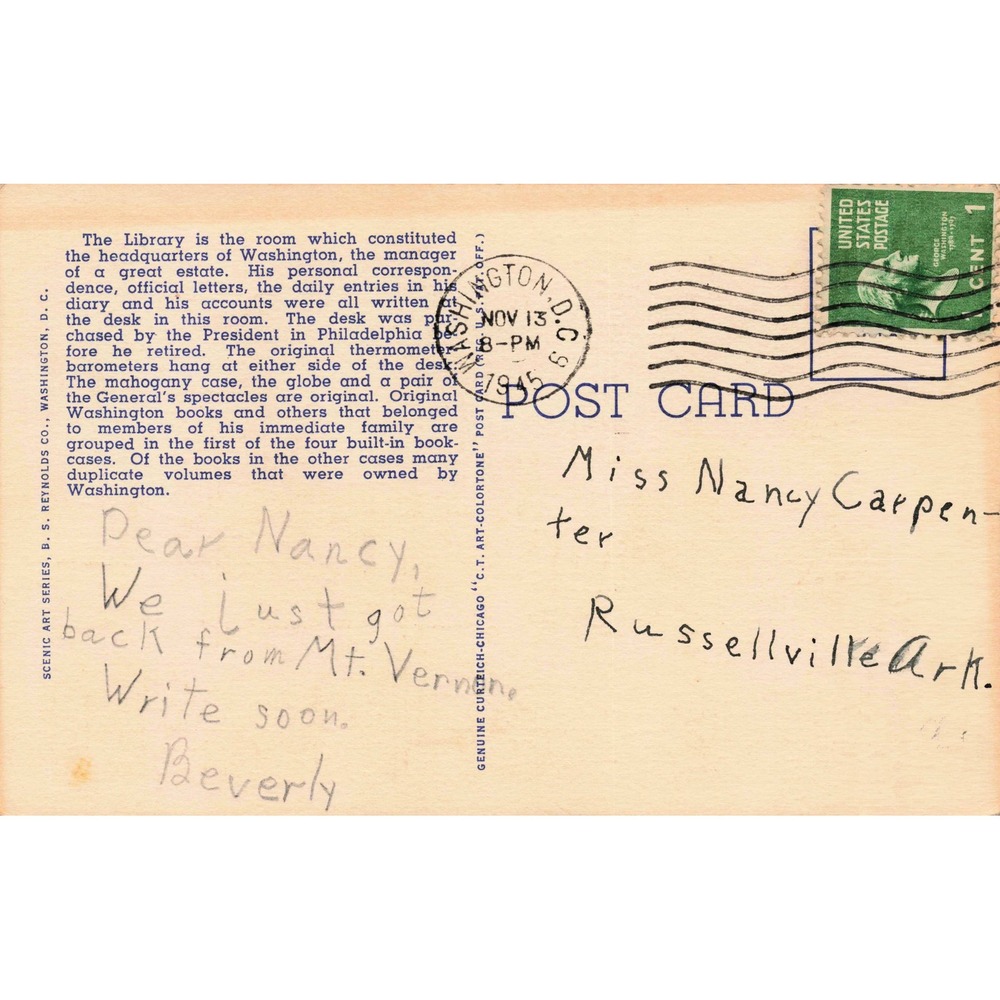 The Library is the room which constituted
the headquarters of Washington, the manager
of a great estate. His personal correspon-
dence, official letters, the daily entries in his
diary and his accounts were all written
the desk in this room. The desk was pur
chased by the President in Philadelphia be
fore he retired. The original thermometer
barometers hang at either side of the desk
The mahogany case, the globe and a pair of
the General's spectacles are original. Original
Washington books and others that belonged
to members of his immediate family are
grouped in the first of the four built-in book-
cases. Of the books in the other cases many
duplicate volumes that were owned by
Washington.
Dear Nancy,
We just got
back from Mt. Vernon.
Write soon.
Beverly
SCENIC ART SERIES, B. S. REYNOLDS CO., WASHINGTON, D. C.
GENUINE CURTEICH-CHICAGO "C.T. ART-COLORTONE" POST CARD (REG. U.S. PAT. OFF.)
WASHINGTON, D.C. 6
NOV 13
8-PM
1945
UNITED
STATES
POSTAGE
GEORGE
WASHINGTON
1 CENT
POST CARD
Miss Nancy Carpen-
ter
Russellville Ark.